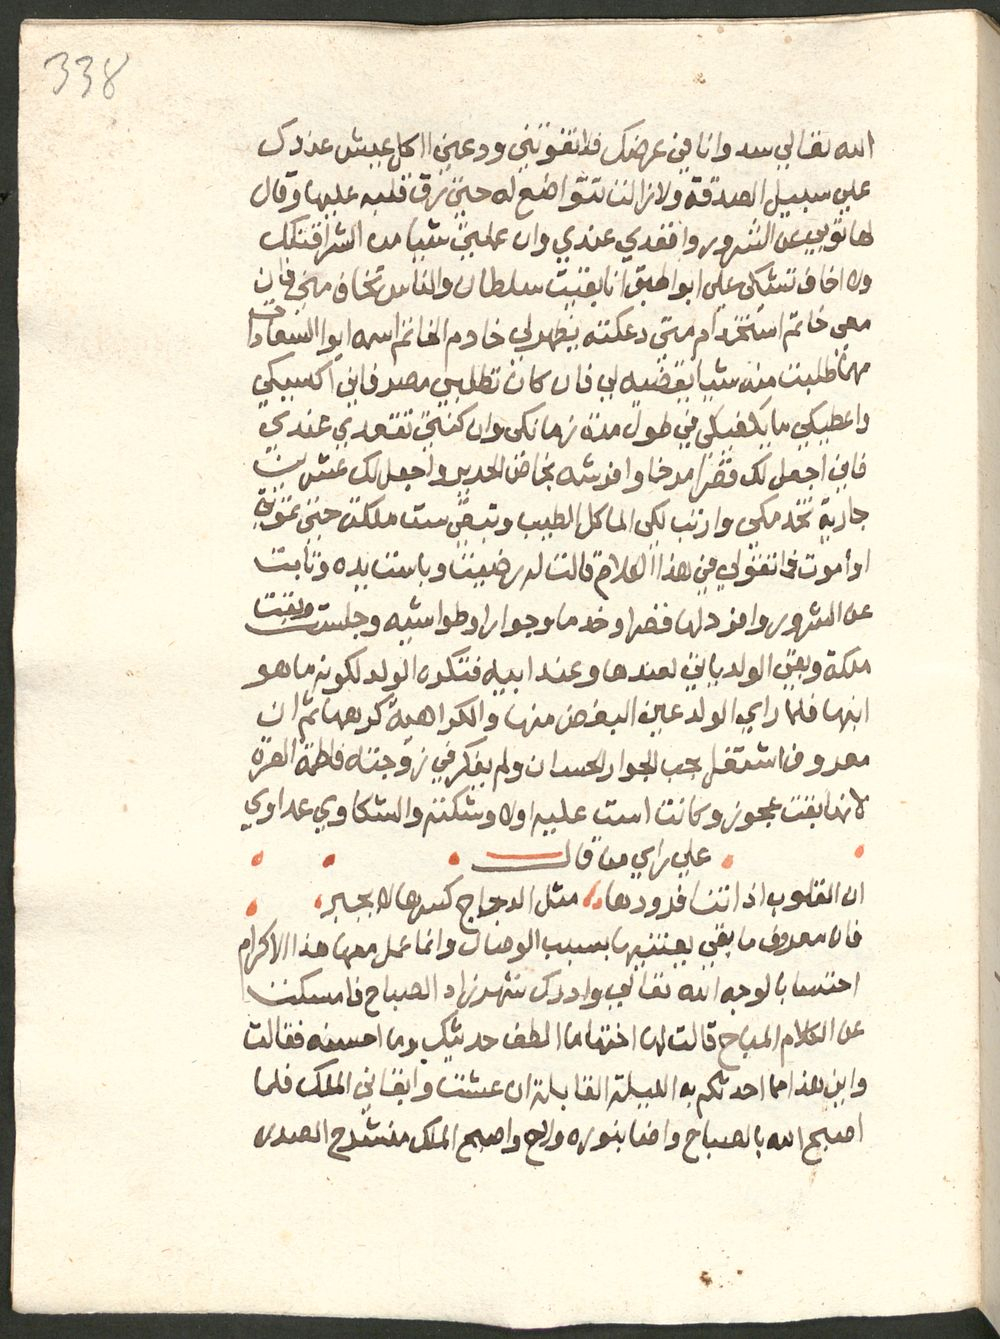 338
الله تعالي سد وانا في عرضك فلا تفوتني ودعني ااكل عيش عندك
علي سبيل الصدقة ولا زالت تتواضع له حتي رق قلبه عليها وقال
لها توبي عن الشرور واقعدي عندي وان عملتي شيا من الشر اقتلك
ولا اخاف تشتكي علي ابوا طبق انا بقيت سلطان والناس تخاف مني فان
معي خاتم استخدام متي دعكته يظهر لي خادم الخاتم اسمه ابوا السعادات
مهما طلبت منه شيا يقضيه لي فان كان تطلبي مصر فاني اكسيكي
واعطيكي ما يكفيكي في طول مدة زمانكي وان كنتي تقعدي عندي
فاني اجعل لك قصرا مرخا وافرشه بخاص الحرير واجعل لك عشرين
جارية تخدمكي وارتب لكي الماكل الطيب وتبقي ست ملكة حتي تموتي
او أموت فما تقولي في هذا الكلام قالت له رضيت وباست يده وتابت
عن الشرور وافرد لها قصرا وخدما وجوارا وطواشيه وجلست وبقت
ملكة وبقي الولد ياتي لعندها وعند ابيه فتكره الولد لكونه ما هو
ابنها فلما راي الولد عين البغض منها والكراهية كرهها ثم ان
معروف اشتغل بحب الجوار الحسان ولم يفكر في زوجته فاطمة العره
لانها بقت عجوز وكانت است عليه اولا وشكته والشكاوي عداوي
علي راي من قال
ان القلوب اذا تنافر ودها مثل الدجاج كسرها لا يجبر
فان معروف ما بقي يعتني بها بسبب الوصال وانما عمل معها هذا الاكرام
احتسابا لوجه الله تعالي وادرك شهرزاد الصباح فامسكت
عن الكلام المباح قالت لها اختها ما الطف حديثك وما احسنه فقالت
واين هذا مما احدثكم به الليلة القابلة ان عشت وابقاني الملك فلما
اصبح الله بالصباح واضا بنوره ولاح واصبح الملك منشرح الصدر